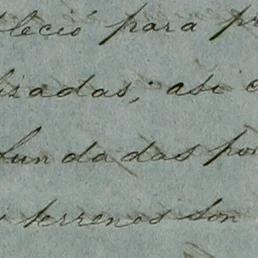 bleció para pr
lizadas; asi c
fundadas por
terrenos son